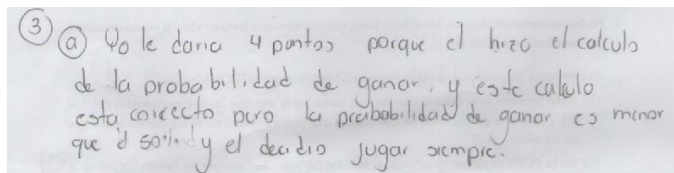 3
a Yo le daria 4 puntos porque el hizo el calculo
de la probabilidad de ganar, y este calulo
esta correcto pero la prababilidad de ganar es menor
que el 50% y el decidio jugar siempre.